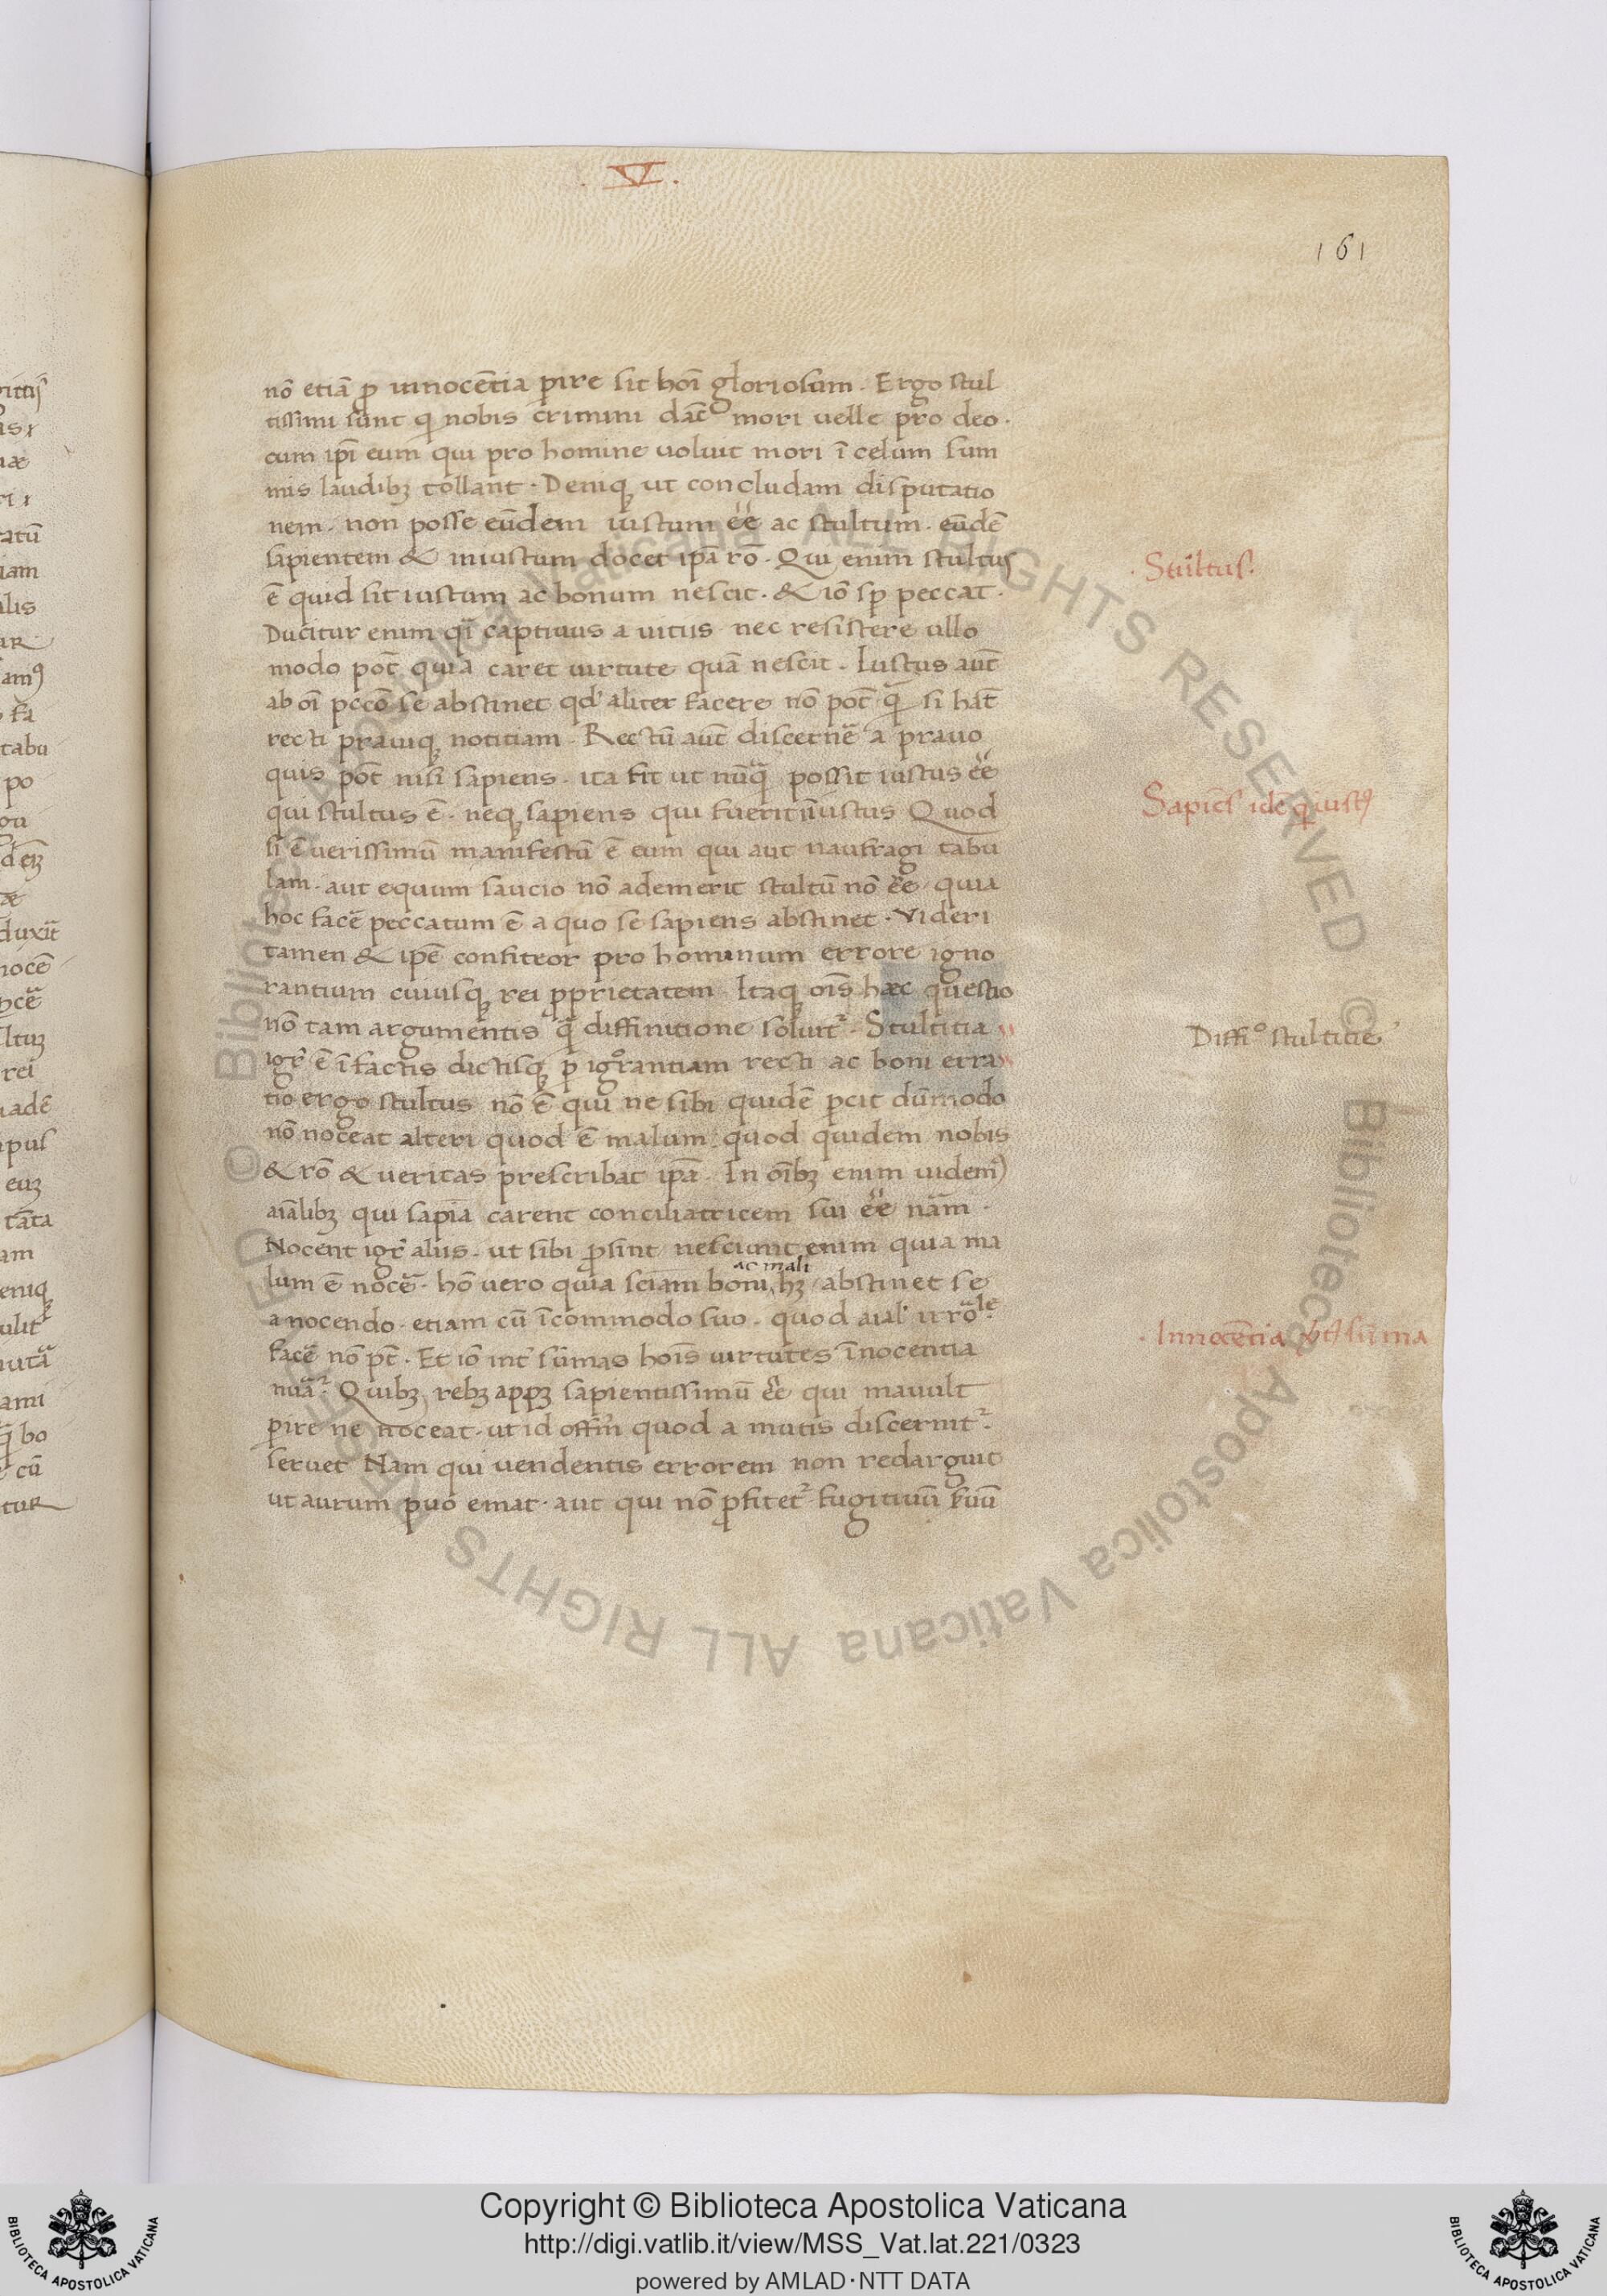 .VI.
161
nō etiā p uinocētia pire sit hoī gloriosum. Ergo stul
tissimi sunt q nobis crimini dāt mori uelle pro deo.
cum ipī eum qui pro homine uoluit mori ī celum sum
mis laudibꝫ tollant. Deniqꝫ ut concludam disputatio
nem. non posse eūdem iustum eē ac stultum. eūdē
sapientem & iniustum docet ipā rō. Qui enim stultus
ē quid sit iustum ac bonum nescit. & iō sp peccat.
Ducitur enim qī captiuus a uitiis nec resistere ullo
modo pōt quia caret uirtute quā nescit. Iustus aūt
ab oī pccō se abstinet qd' aliter facere nō pōt q̄ si hāt
recti prauiqꝫ notitiam. Rectū aūt discernē a prauo
quis pōt nisi sapiens. ita fit ut nūq̄ possit iustus eē
qui stultus ē. neqꝫ sapiens qui fuerit īiustus Quod
si ē uerissimū manifestū ē eum qui aut naufragi tabu
lam. aut equum saucio nō ademerit stultū nō eē. quia
hoc facē peccatum ē a quo se sapiens abstinet. Videri
tamen & ipē confiteor pro hominum errore igno
rantium cuiusqꝫ rei pprietatem. Itaqꝫ oīs hæc questio
nō tam argumentis q̄ diffinitione soluit᷑. Stultitia
igr̄ ē ī factis dictisqꝫ p igrantiam recti ac boni erra
tio ergo stultus nō ē qui ne sibi quidē pcit dūmodo
nō noceat alteri quod ē malum. quod quidem nobis
& rō & ueritas prescribat ipā. In oībꝫ enim uidemꝰ
aīalibꝫ qui sapīa carent conciliatricem sui eē nām.
Nocent igr̄ aliis. ut sibi prosint nesciunt enim quia ma
ac mali
lum ē nocē. hō uero quia sciam boni hꝫ abstinet se
a nocendo. etiam cū īcommodo suo. quod aīal irrōle
facē nō pt. Et iō int' sūmas hoīs uirtutes īnocentia
nuāt᷑. Quibꝫ rebꝫ appꝫ sapientissimū eē qui mauult
pire ne noceat. ut id offm̄ quod a mutis discernit᷑.
seruet Nam qui uendentis errorem non redarguit
ut aurum puo emat. aut qui nō pfitet᷑ fugitiuū suū
Stultus.
Sapiēs idē q iustꝰ
Diffiᵒ stultitie
Innocētia sūma